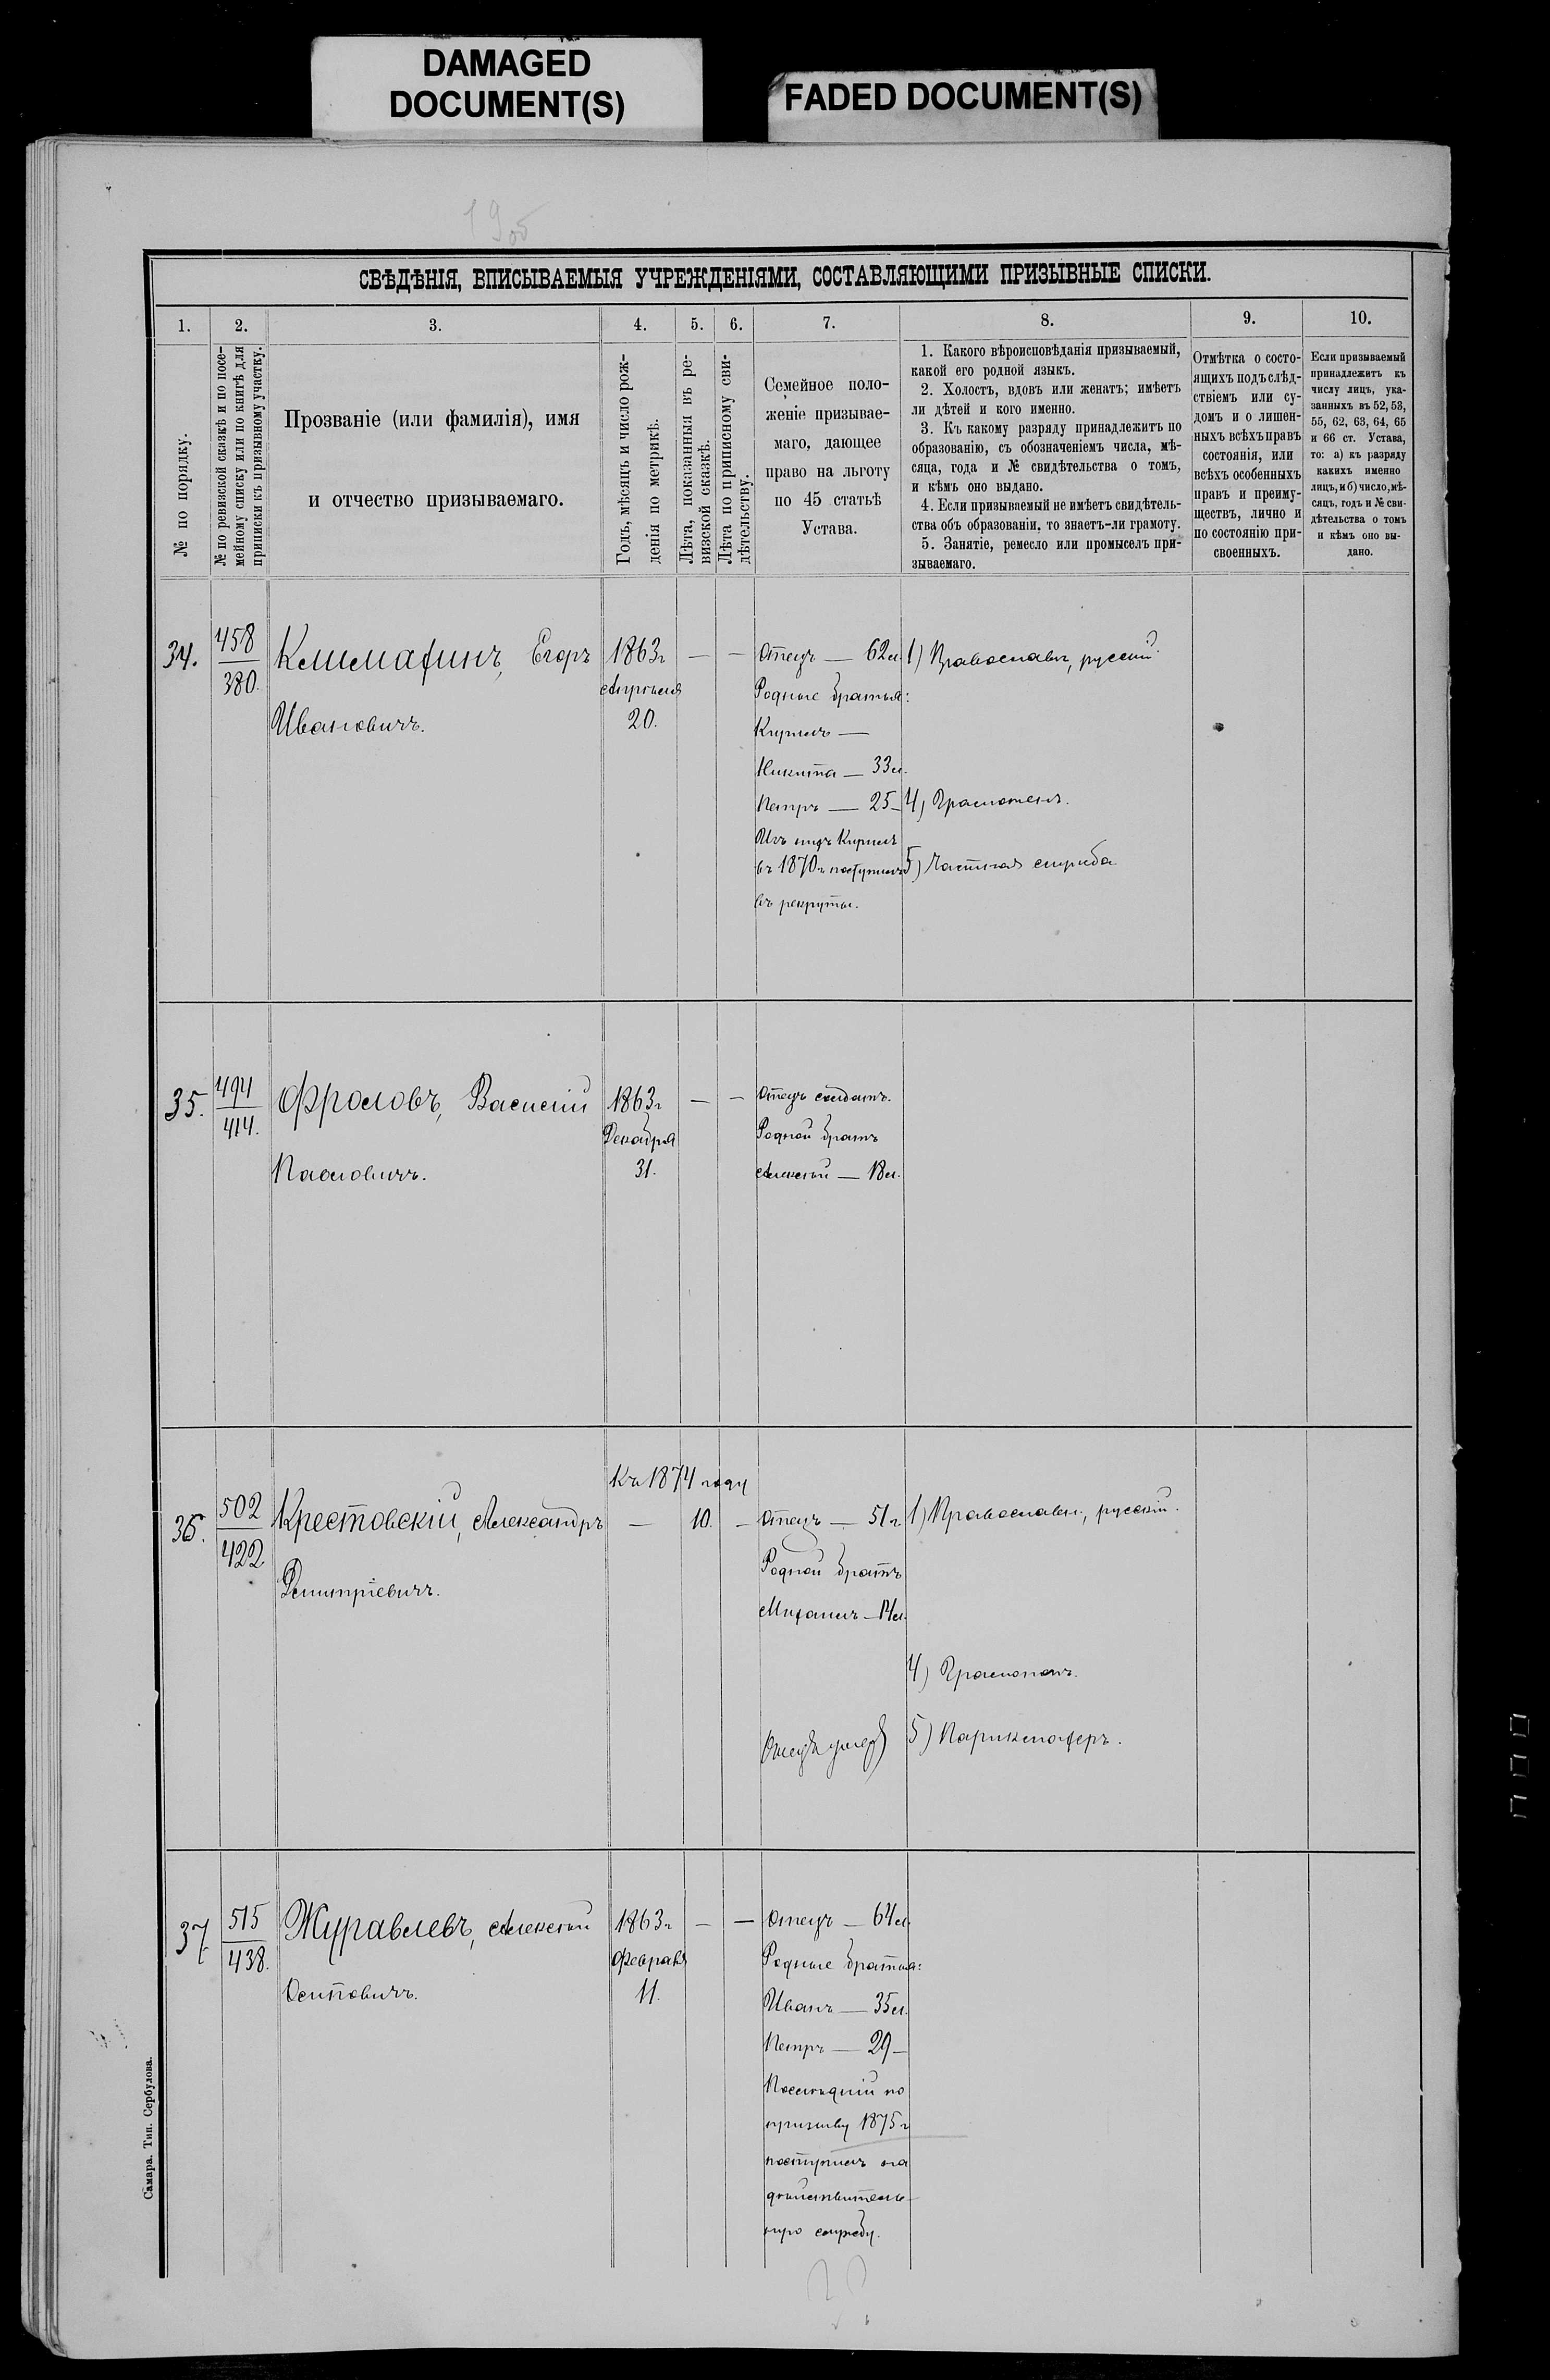 DAMAGED
DOCUMENT(S)
FADED DOCUMENT(S)
СВѢДѢНІЯ, ВПИСЫВАЕМЫЯ УЧРЕЖДЕНІЯМИ, СОСТАВЛЯЮЩИМИ ПРИЗЫВНЫЕ СПИСКИ.
1.
2.
3.
4.
5.
6.
7.
8.
9.
10.
№ по порядку.
№ по ревизской сказкѣ и по посе-
мейному списку или по книгѣ для
приписки къ призывному участку.
Прозваніе (или фамилія), имя
и отчество призываемаго.
Годъ, мѣсяцъ и число рож-
денія по метрикѣ.
Лѣта, показанныя въ ре-
визской сказкѣ.
Лѣта по приписному сви-
дѣтельству.
Семейное поло-
женіе призывае-
маго, дающее
право на льготу
по 45 статьѣ
Устава.
1. Какого вѣроисповѣданія призываемый,
какой его родной языкъ.
2. Холостъ, вдовъ или женатъ; имѣетъ
ли дѣтей и кого именно.
3. Къ какому разряду принадлежитъ по
образованію, съ обозначеніемъ числа, мѣ-
сяца, года и № свидѣтельства о томъ,
и кѣмъ оно выдано.
4. Если призываемый не имѣетъ свидѣтель-
ства объ образованіи, то знаетъ-ли грамоту.
5. Занятіе, ремесло или промыселъ при-
зываемаго.
Отмѣтка о состо-
ящихъ подъ слѣд-
ствіемъ или су-
домъ и о лишен-
ныхъ всѣхъ правъ
состоянія, или
всѣхъ особенныхъ
правъ и преиму-
ществъ, лично и
по состоянію при-
своенныхъ.
Если призываемый
принадлежитъ къ
числу лицъ, ука-
занныхъ въ 52, 53,
55, 62, 63, 64, 65
и 66 ст. Устава,
то: а) къ разряду
какихъ именно
лицъ, и б) число, мѣ-
сяцъ, годъ и № сви-
дѣтельства о томъ
и кѣмъ оно вы-
дано.
34.
458
380.
Егоръ
Ивановичъ.
1863 г
Апрѣля
20.
—
—
Отецъ — 62 л
Родные братья:
Кирилъ —
Никита — 33 л.
Петръ — 25 —
Изъ нихъ Кирилъ
въ 1870 г поступилъ
въ рекруты.
1) Православн, русскій.
4) Грамотенъ.
5) Частная служба
35.
494
414.
Фроловъ, Василій
Павловичъ.
1863 г
Декабря
31.
—
—
Отецъ солдатъ.
Родной братъ
Алексѣй — 18 л.
36.
502
422
Крестовскій, Александръ
Дмитріевичъ.
Къ 1874 году
—
10.
—
Отецъ — 51 г
Родной братъ
Михаилъ — 14 л.
Отецъ умеръ
1) Православн, русскій.
4) Грамотенъ.
5) Парикмахеръ.
37
515
438.
Журавлевъ, Алексѣй
Осиповичъ.
1863 г
Февраля
11.
—
—
Отецъ — 64 л.
Родные братья:
Иванъ — 35 л.
Петръ — 29 —
Послѣдній по
призыву 1875 г
поступилъ на
дѣйствитель-
ную службу.
Самара. Тип. Сербулова.